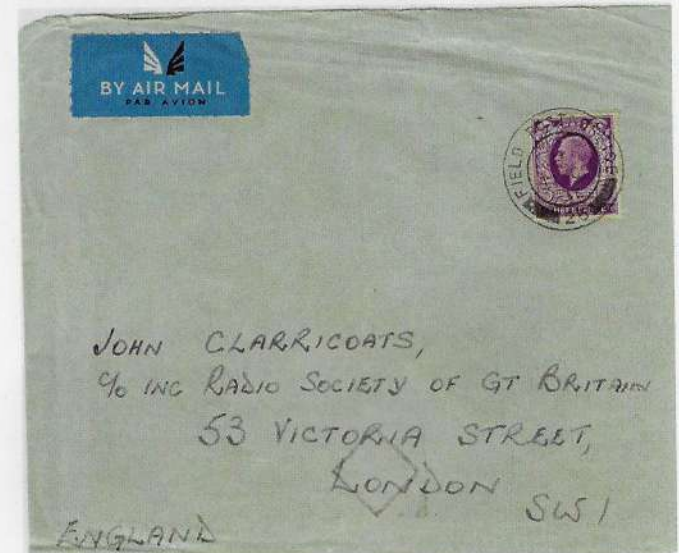 BY AIR MAIL
PAR AVION
FIELD POST OFFICE
JOHN CLARRICOATS,
c/o INC RADIO SOCIETY OF GT BRITAIN
53 VICTORIA STREET,
LONDON
SW1
ENGLAND